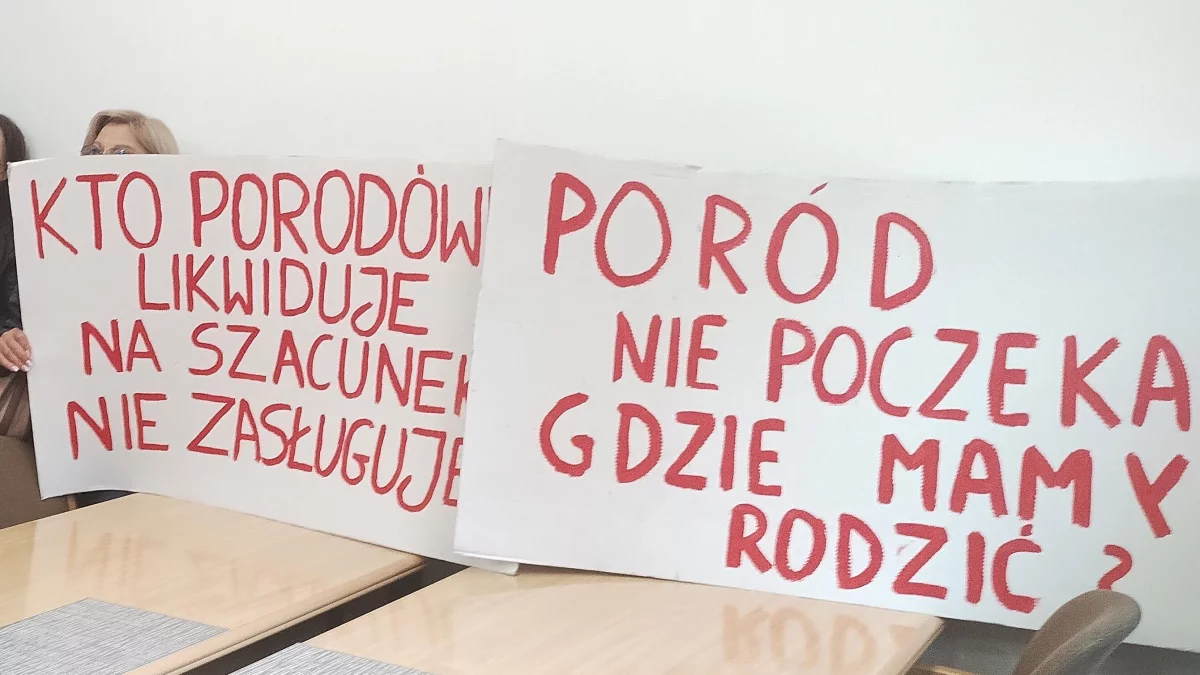 KTO PORODÓW
LIKWIDUJE
NA SZACUNEK
NIE ZASŁUGUJE
PORÓD
NIE POCZEKA
GDZIE MAMY
RODZIĆ?